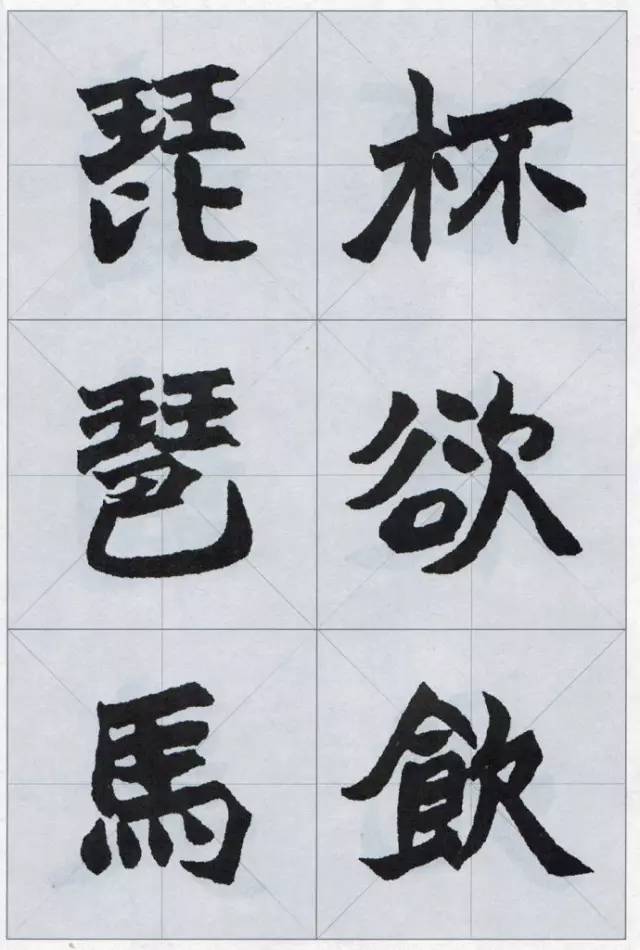 杯欲飲
琵琶馬